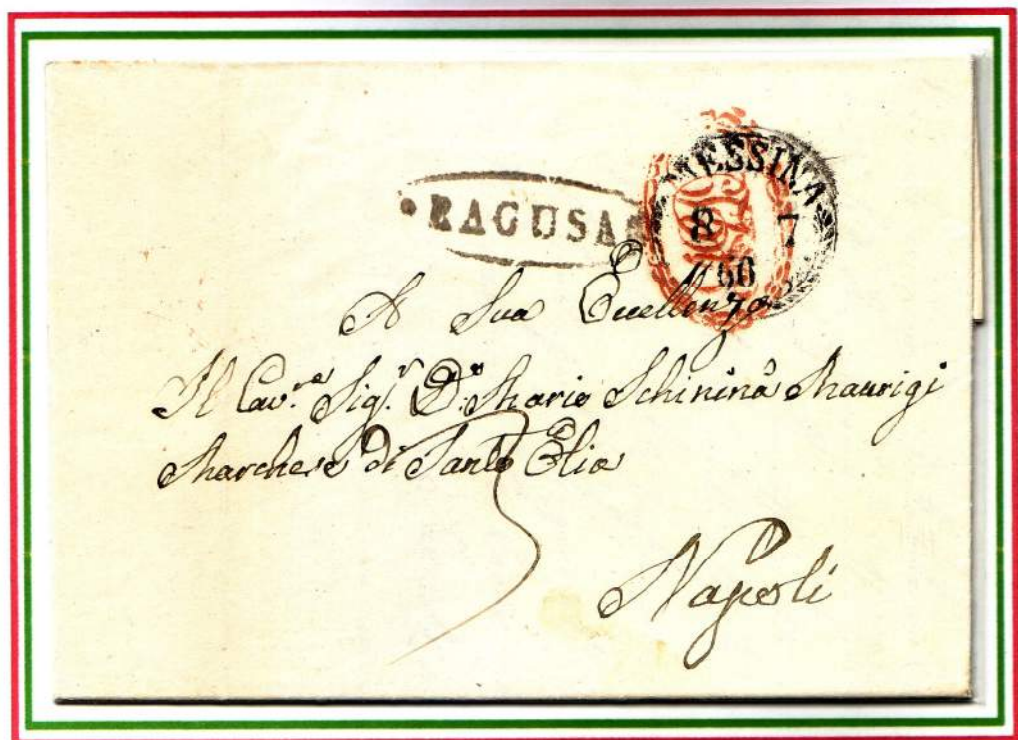 RAGUSA
MESSINA
8 7
60
A Sua Eccellenza
Il Cav.re Sig.r D.n Mario Schininà Maurigi
Marchese di Santo Elia
5
Napoli